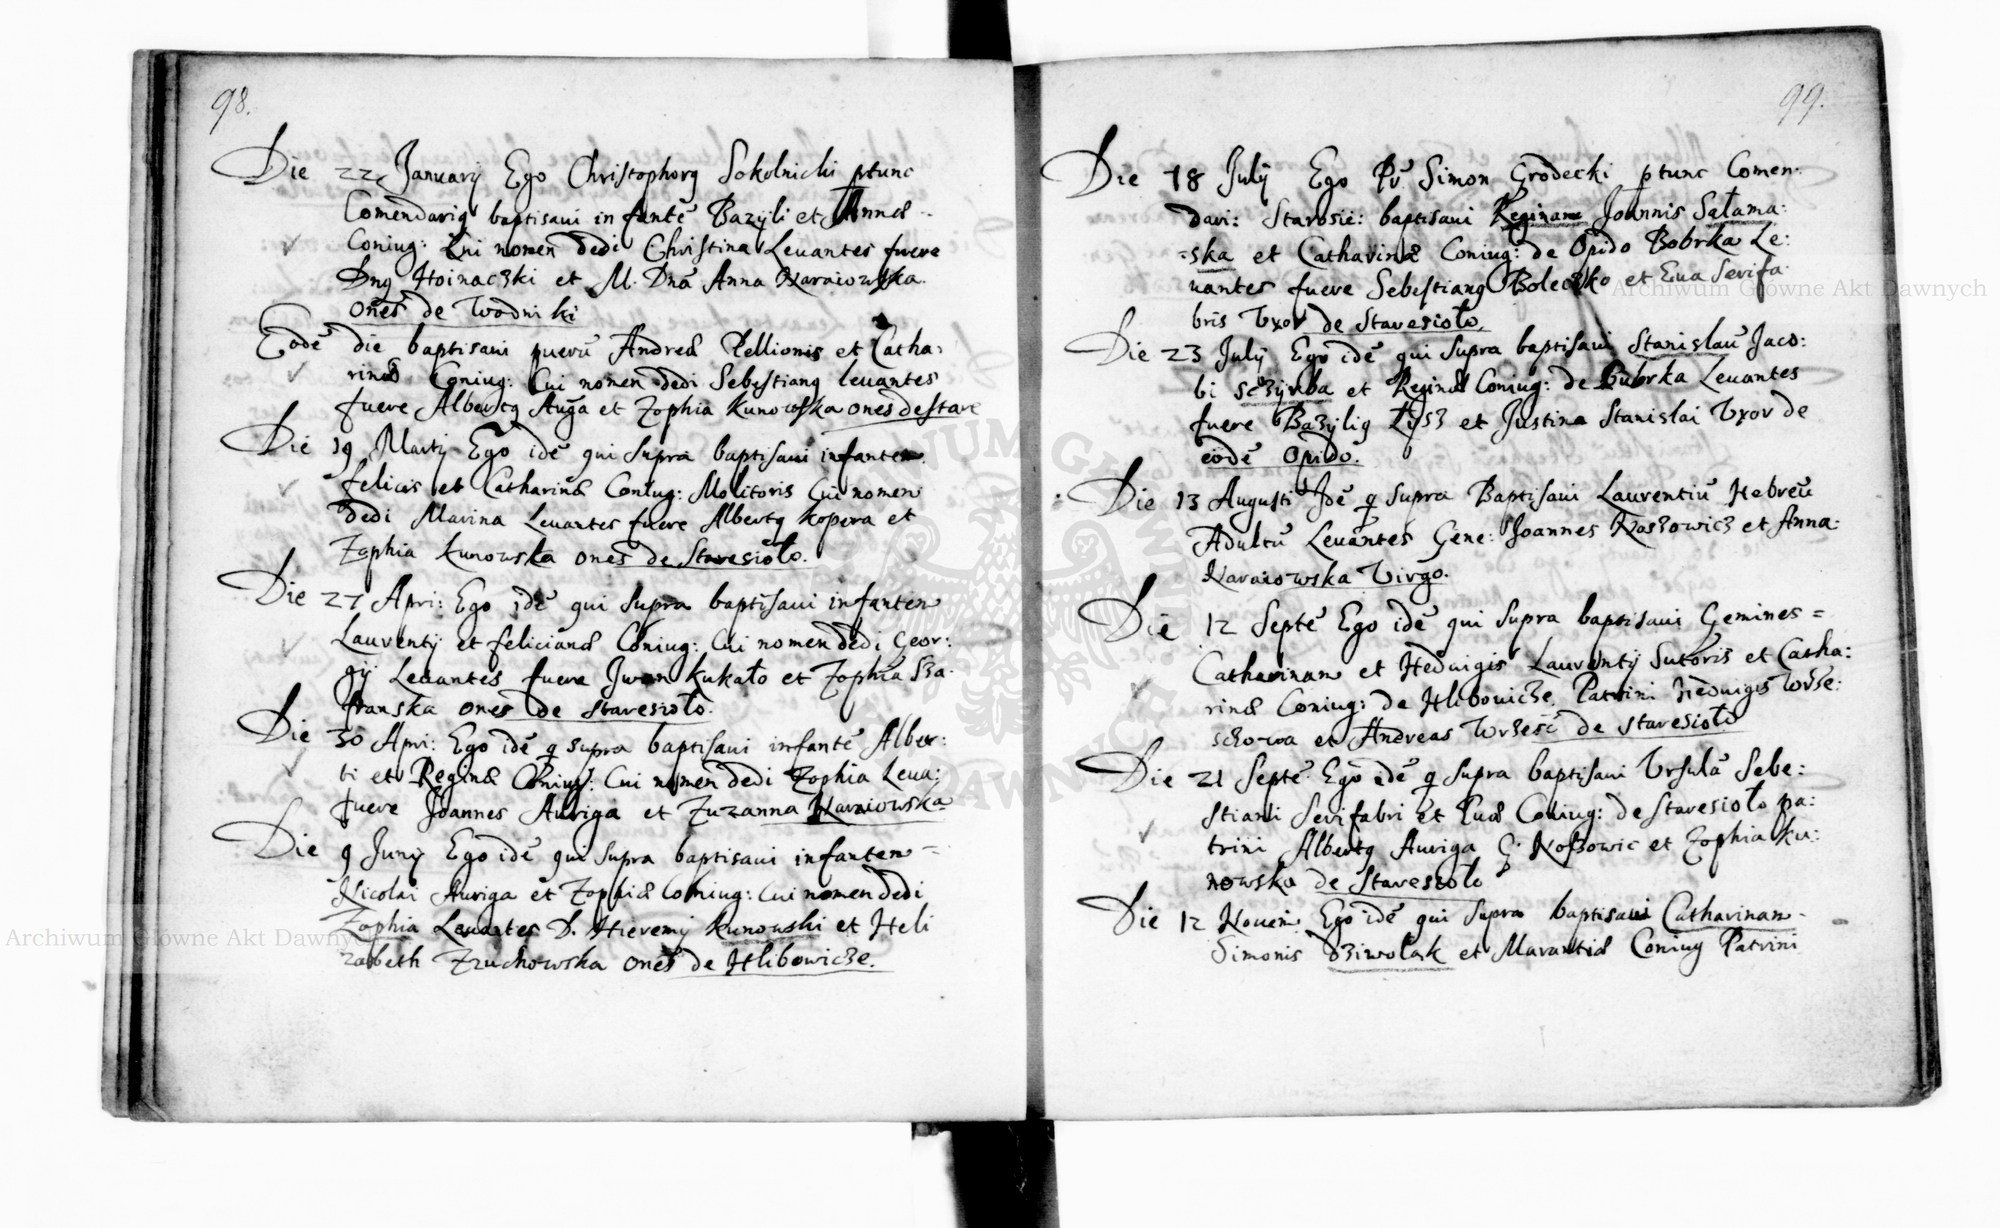 98.
Die 22 Januarij Ego Christophorq Sokolnicki ptunc
Comendariq baptisaui infantē Bazyli et Annæ
Coniug: Cui nomen dedi Christina Leuantes fuere
Dnq Hoinaczki et M. Dna Anna Naraiowska.
Ones de Wodniki
Eodē die baptisaui puerū Andreæ Pellionis et Catha:
rinæ Coniug: Cui nomen dedi Sebestianq leuantes
fuere Albertq Auga et Zophia Kunowska ones de stare
Die 19 Martij Ego idē qui supra baptisaui infantem
felicis et Catharinæ Coniug: Molitoris Cui nomen
dedi Marina Leuantes fuere Albertq Kopera et
Zophia Kunowska ones de Staresioło.
Die 27 Apri: Ego idē qui supra baptisaui infanten
Laurentij et felicianæ Coniug: Cui nomen dedi Geor:
gij Leuantes fuere Jwan Kukało et Zophia Sza:
franska ones de Staresioło.
Die 30 Apri: Ego idē q supra baptisaui infantē Alber:
ti et Reginæ Coniug: Cui nomen dedi Zophia Leua:
fuere Joannes Auriga et Zuzanna Naraiowska
Die 9 Junij Ego idē qui supra baptisaui infanten
Nicolai Auriga et Zophiæ Coniug: Cui nomen dedi
Zophia Leuantes D. Hieremij Kunowski et Heli
zabeth Zruchowska ones de Hlibowicze.
99.
Die 18 Julij Ego Simon Grodecki ptunc Comen:
dari: Starosie: baptisaui Reginam Joannis Sałama:
=ska et Catharinæ Coniug: de Opido Bobrka Le:
uantes fuere Sebestianq Boleczko et Eua Serifa
bris Vxor de Staresioło.
Die 23 Julij Ego idē qui supra baptisaui Stanislaū Jaco:
bi Sczyrba et Reginæ Coniug: de Bubrka Leuantes
fuere Bazyliq Łysz et Justina Stanislai Vxor de
eodē Opido.
Die 13 Augusti Jdē q supra Baptisaui Laurentiū Hebreū
Adultū Leuantes Gene: Joannes Koszowicz et Anna
Naraiowska Virgo.
Die 12 Septē Ego idē qui supra baptisaui Gemines =
Catharinam et Heduigis Laurentij Sutoris et Catha:
rinæ Coniug: de Hlibowicze. Patrini Heduigis Wrze:
sczowa et Andreas Wrzesc de Staresioło
Die 21 Septē Ego idē q supra baptisaui Vrsulā Sebe:
stiani Serifabri et Euæ Coniug: de Staresioło pa:
trini Albertq Auriga G. Koszowic et Zophia Ku:
nowska de Staresioło
Die 12 Nouem: Ego idē qui supra baptisaui Catharinam
Simonis Dziwolak et Marantiæ Coniug Patrini